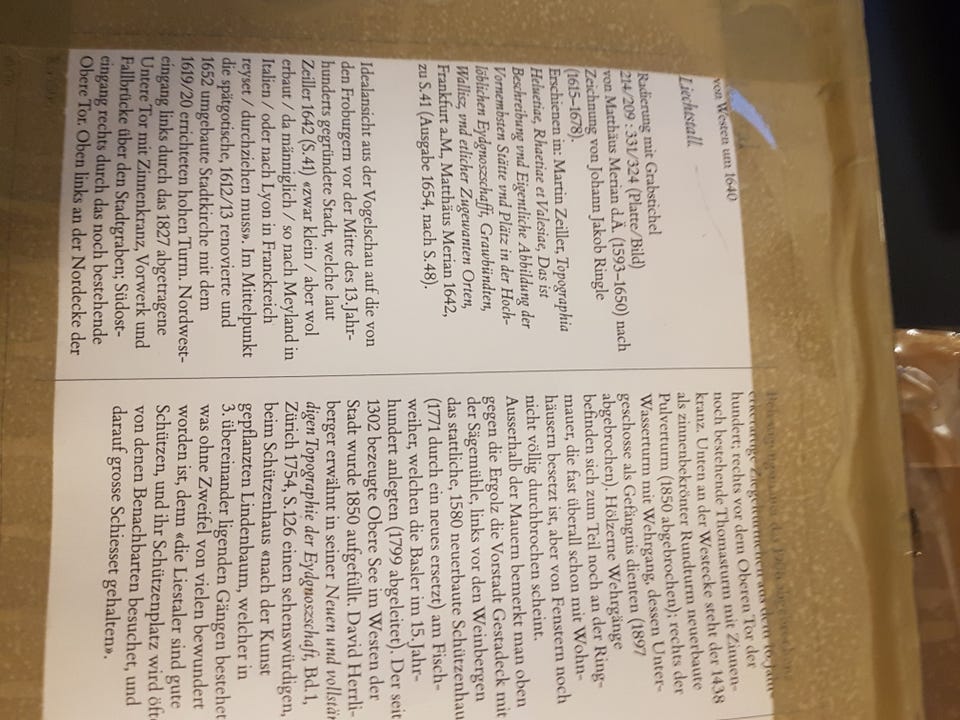 von Westen um 1640
Liechstall.
Radierung mit Grabstichel
214/209 : 331/324 (Platte/Bild)
von Matthäus Merian d.Ä. (1593–1650) nach
Zeichnung von Johann Jakob Ringle
(1615–1678).
Erschienen in: Martin Zeiller, Topographia
Helvetiae, Rhaetiae et Valesiae, Das ist
Beschreibung vnd Eigentliche Abbildung der
Vornembsten Stätte vnd Plätz in der Hoch-
löblichen Eydgnoszschafft, Grawbündten,
Wallisz, vnd etlicher Zugewanten Orten,
Frankfurt a.M., Matthäus Merian 1642,
zu S.41 (Ausgabe 1654, nach S.48).
Idealansicht aus der Vogelschau auf die von
den Froburgern vor der Mitte des 13. Jahr-
hunderts gegründete Stadt, welche laut
Zeiler 1642 (S.41) «zwar klein / aber wol
erbaut / da männiglich / so nach Meyland in
Italien / oder nach Lyon in Franckreich
reyset / durchziehen muss». Im Mittelpunkt
die spätgotische, 1612/13 renovierte und
1652 umgebaute Stadtkirche mit dem
1619/20 errichteten hohen Turm. Nordwest-
eingang links durch das 1827 abgetragene
Untere Tor mit Zinnenkranz, Vorwerk und
Fallbrücke über den Stadtgraben; Südost-
eingang rechts durch das noch bestehende
Obere Tor. Oben links an der Nordecke der
hundert; rechts vor dem Oberen Tor der
noch bestehende Thomasturm mit Zinnen-
kranz. Unten an der Westecke steht der 1438
als zinnenbekrönter Rundturm neuerbaute
Pulverturm (1850 abgebrochen); rechts der
Wasserturm mit Wehrgang, dessen Unter-
geschosse als Gefängnis dienten (1897
abgebrochen). Hölzerne Wehrgänge
befinden sich zum Teil noch an der Ring-
mauer, die fast überall schon mit Wohn-
häusern besetzt ist, aber von Fenstern noch
nicht völlig durchbrochen scheint.
Ausserhalb der Mauern bemerkt man oben
gegen die Ergolz die Vorstadt Gestadeck mit
der Sägemühle, links vor den Weinbergen
das stattliche, 1580 neuerbaute Schützenhau
(1771 durch ein neues ersetzt) am Fisch-
weiher, welchen die Basler im 15. Jahr-
hundert anlegten (1799 abgeleitet). Der seit
1302 bezeugte Obere See im Westen der
Stadt wurde 1850 aufgefüllt. David Herrli-
berger erwähnt in seiner Neuen und vollstän
digen Topographie der Eydgnoszschaft, Bd.1,
Zürich 1754, S.126 einen sehenswürdigen,
beim Schützenhaus «nach der Kunst
geplanzten Lindenbaum, welcher in
3. übereinander ligenden Gängen bestehet
was ohne Zweifel von vielen bewundert
worden ist, denn «die Liestaler sind gute
Schützen, und ihr Schützenplatz wird öfte
von denen Benachbarten besuchet, und
darauf grosse Schiesset gehalten».